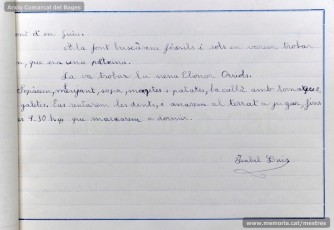 Arxiu Comarcal del Bages
font d'en Juiu.
A la font buscàrem fòssils i sols en varem trobar
un, que era una petxina.
La va trobar la nena Elionor Orriols.
Sopàrem, menjant, sopa, mongetes i patates, bacallà amb tomàquet
galetes. Ens rentàrem les dents, i anàrem al terrat a jugar, fins
les 9.30 h. que marxàrem a dormir.
Isabel
www.memoria.cat/mestres